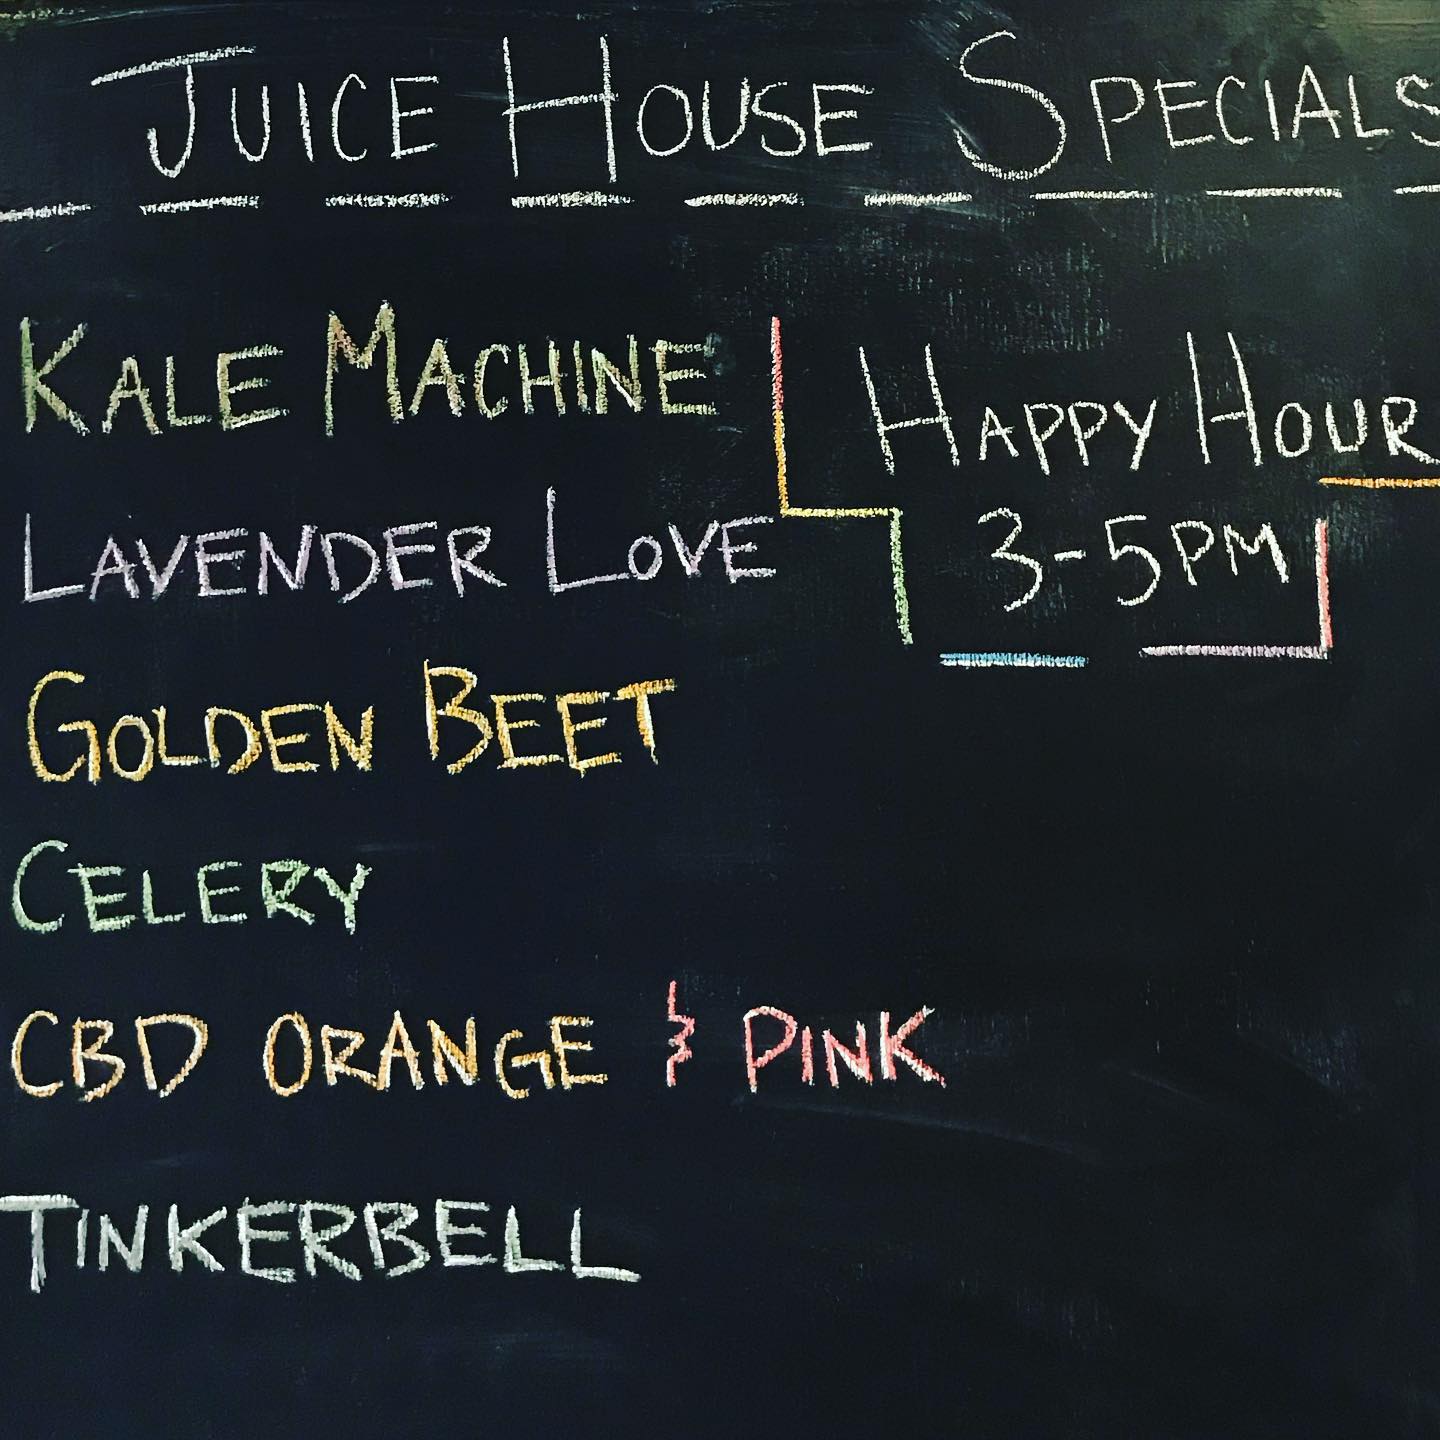 JUICE HOUSE SPECIALS
KALE MACHINE
LAVENDER LOVE
GOLDEN BEET
CELERY
CBD ORANGE & PINK
TINKERBELL
HAPPY HOUR
3-5PM